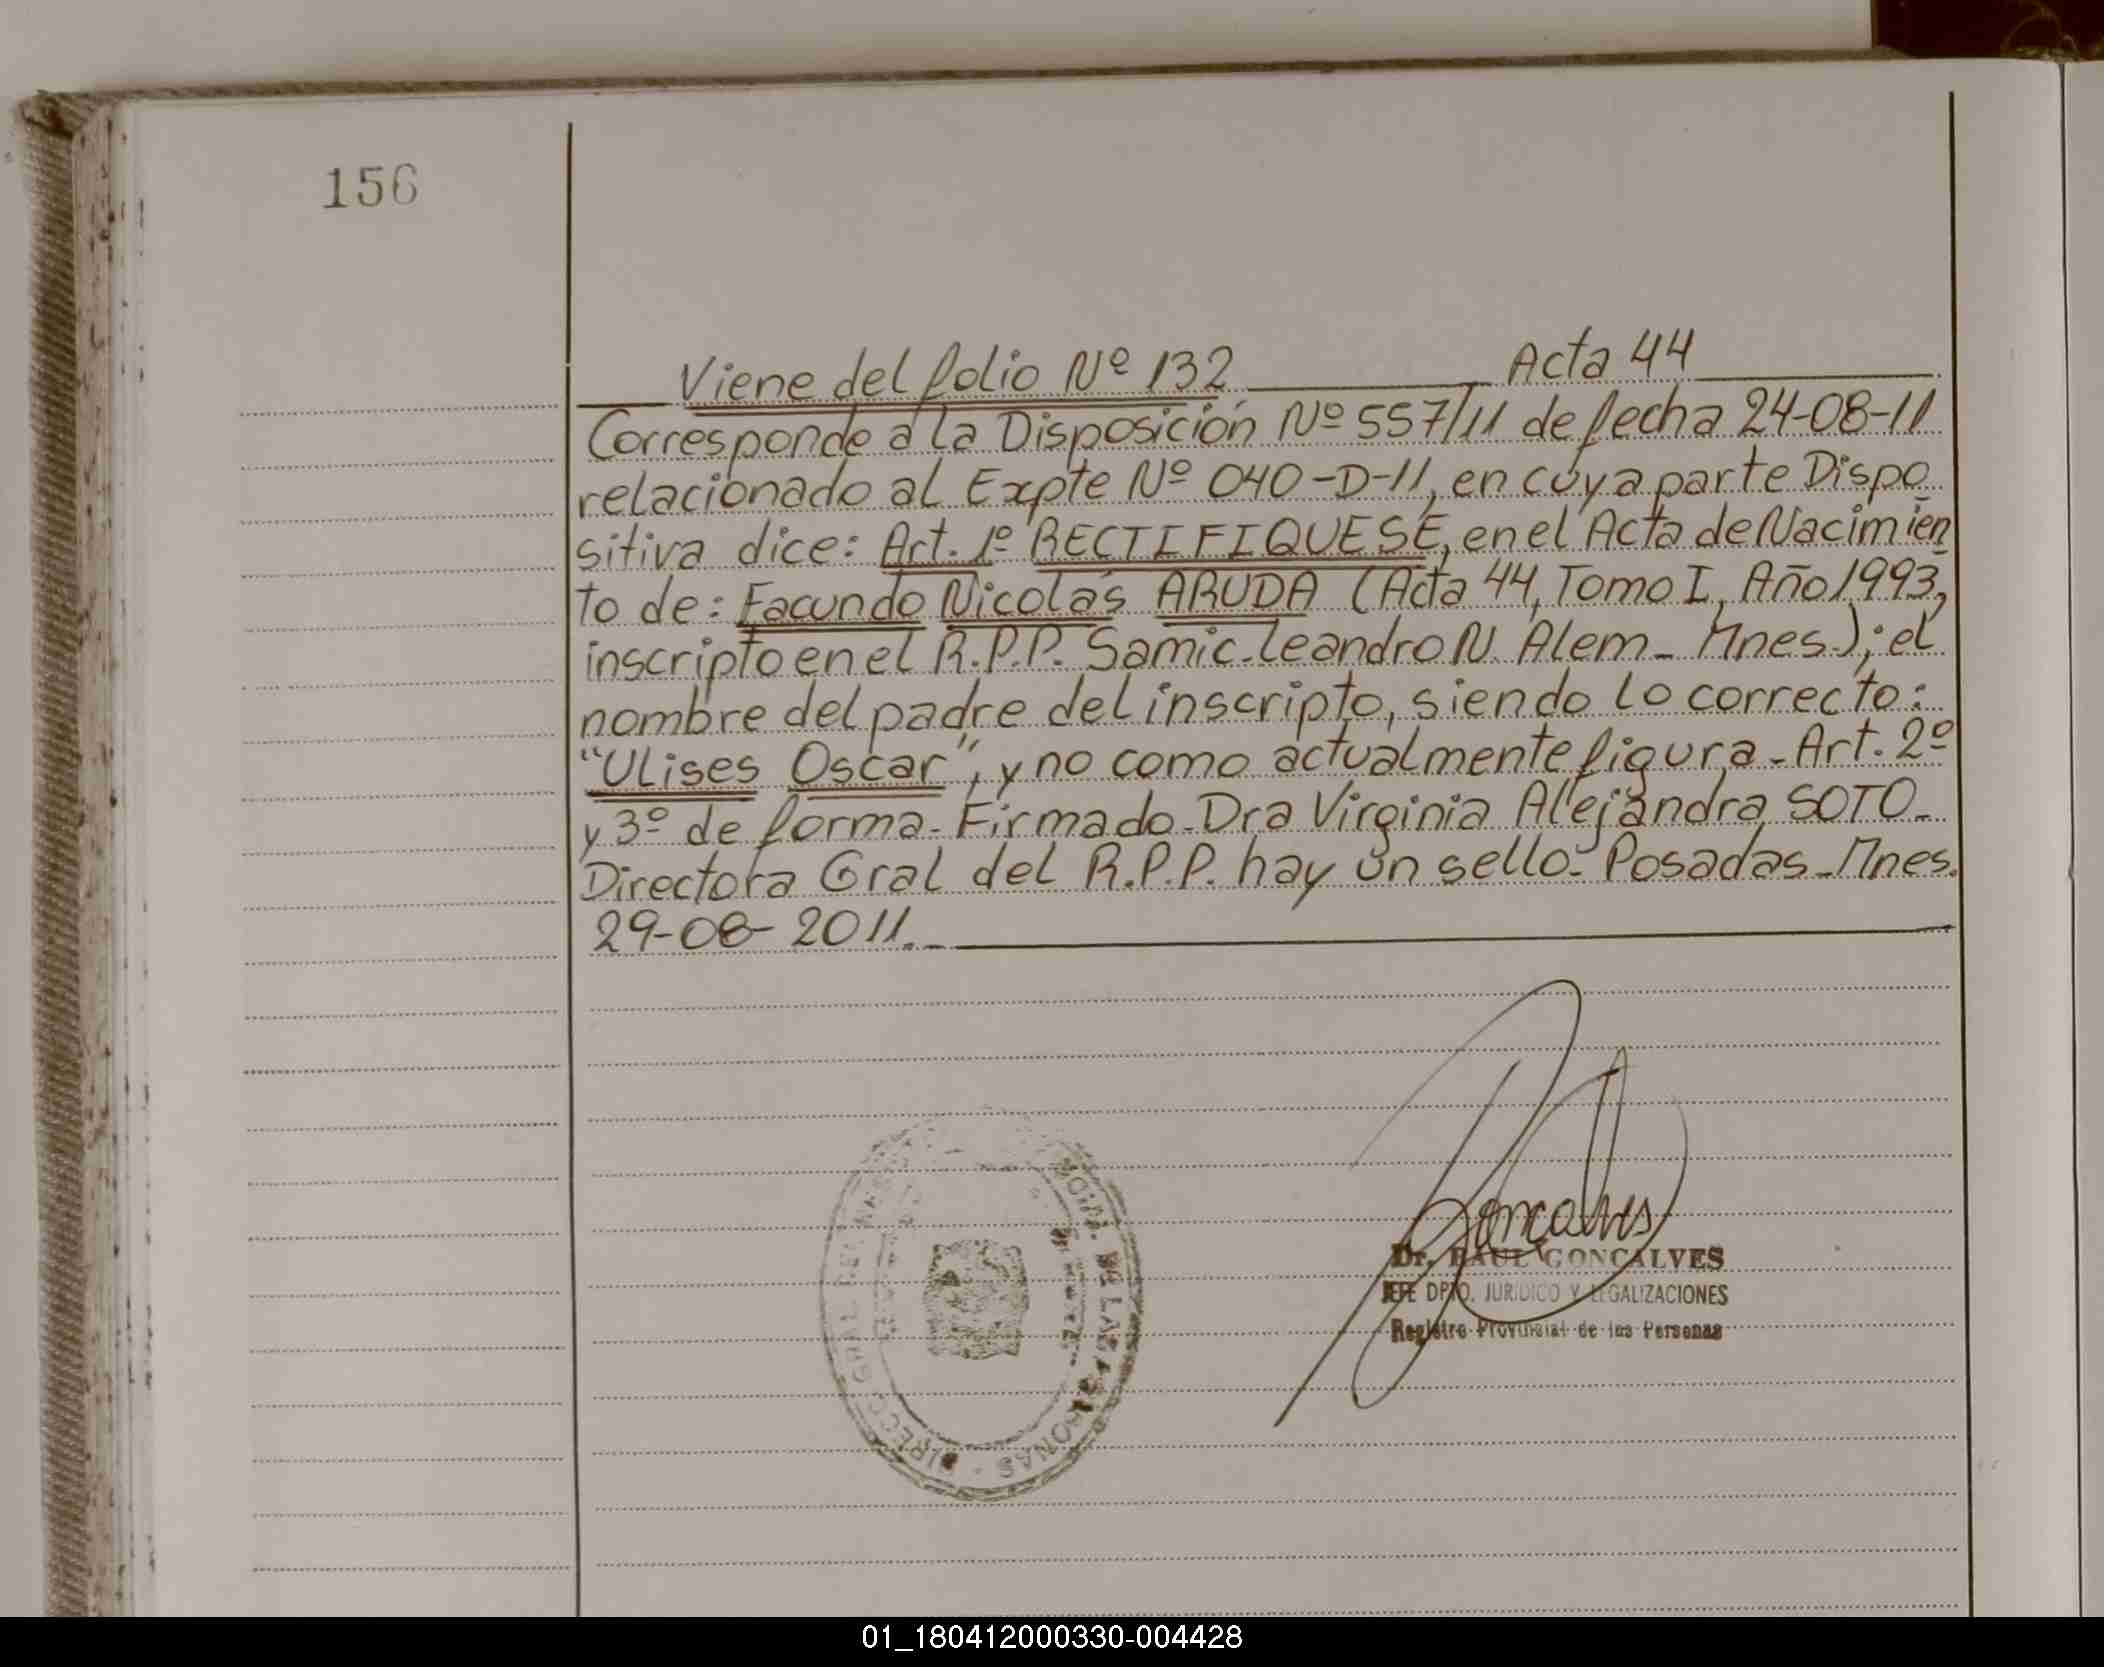 156
Viene del folio Nº 132 Acta 44
Corresponde a la Disposición Nº 557/11 de fecha 24-08-11
relacionado al Expte Nº 040-D-11, en cuya parte Dispo
sitiva dice: Art. 1º RECTIFIQUESE, en el Acta de Nacimien
to de: Facundo Nicolás ARUDA (Acta 44, Tomo I, Año 1993,
inscripto en el R.P.P. Samic-Leandro N. Alem - Mnes.); el
nombre del padre del inscripto, siendo lo correcto:
"Ulises Oscar", y no como actualmente figura - Art. 2º
y 3º de forma - Firmado - Dra Virginia Alejandra SOTO -
Directora Gral del R.P.P. hay un sello - Posadas - Mnes.
29-08-2011.-
Goncalves
Dr. RAUL GONCALVES
JEFE DPTO. JURIDICO Y LEGALIZACIONES
Registro Provincial de las Personas
DIRECC. GRAL. DE LAS PERSONAS
01_180412000330-004428